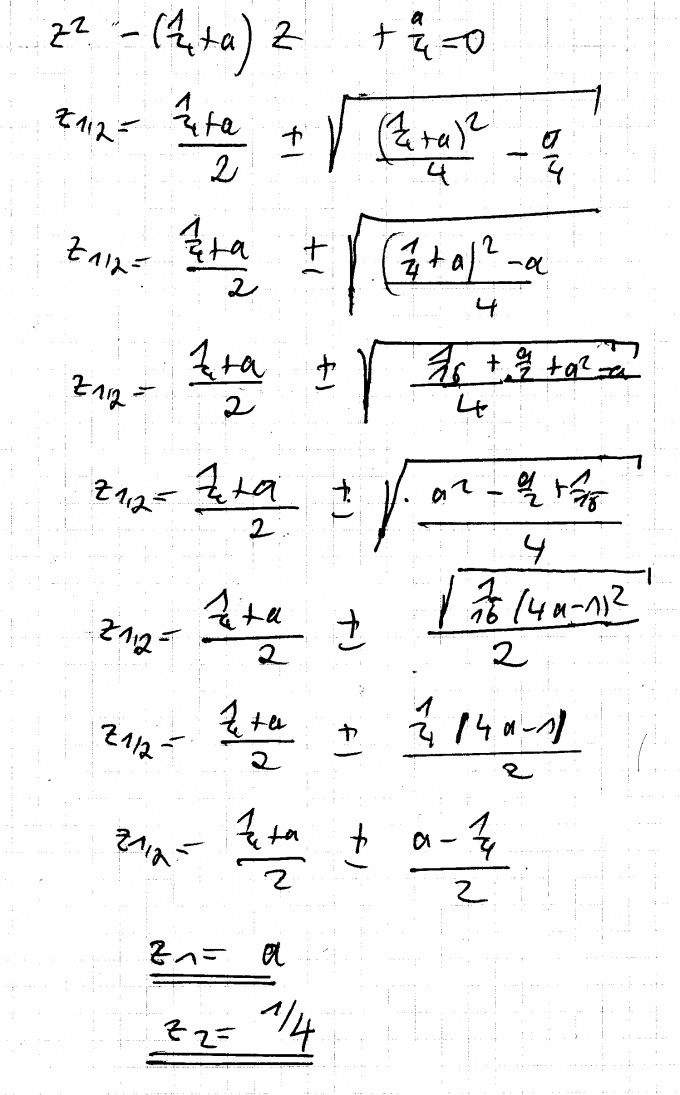 z² - (1/4 + a) z + a/4 = 0
z1,2 = (1/4 + a)/2 ± √((1/4 + a)²/4 - a/4)
z1/2 = (1/4 + a)/2 ± √(((1/4 + a)² - a)/4)
z1/2 = (1/4 + a)/2 ± √((1/16 + a/2 + a² - a)/4)
z1,2 = (1/4 + a)/2 ± √((a² - a/2 + 1/16)/4)
z1,2 = (1/4 + a)/2 ± √(1/16 (4a-1)²)/2
z1/2 = (1/4 + a)/2 ± 1/4 |4a-1|/2
z1,2 = (1/4 + a)/2 ± (a - 1/4)/2
z1 = a
z2 = 1/4